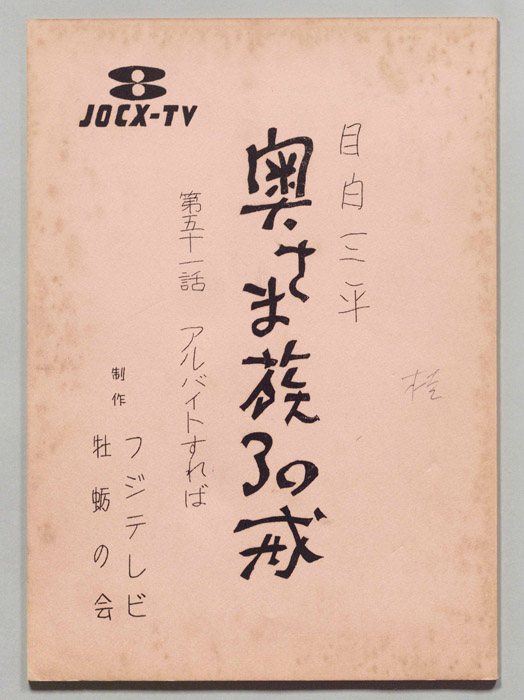 JOCX-TV
目白三平
奥さま族 の戒
第五十一話 アルバイトすれば
制作
フジテレビ
牡蛎の会
桂